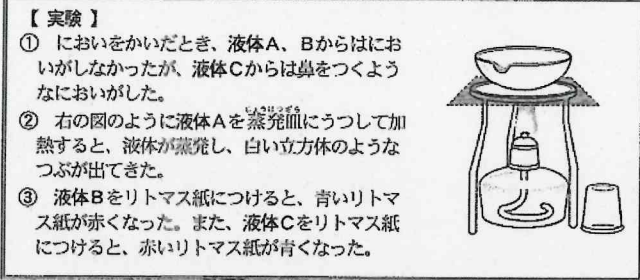 【 実験 】
① においをかいだとき、液体A、Bからはにお
いがしなかったが、液体Cからは鼻をつくよう
なにおいがした。
② 右の図のように液体Aを蒸発皿にうつして加
じょうはつざら
熱すると、液体が蒸発し、白い立方体のような
つぶが出てきた。
③ 液体Bをリトマス紙につけると、青いリトマ
ス紙が赤くなった。また、液体Cをリトマス紙
につけると、赤いリトマス紙が青くなった。